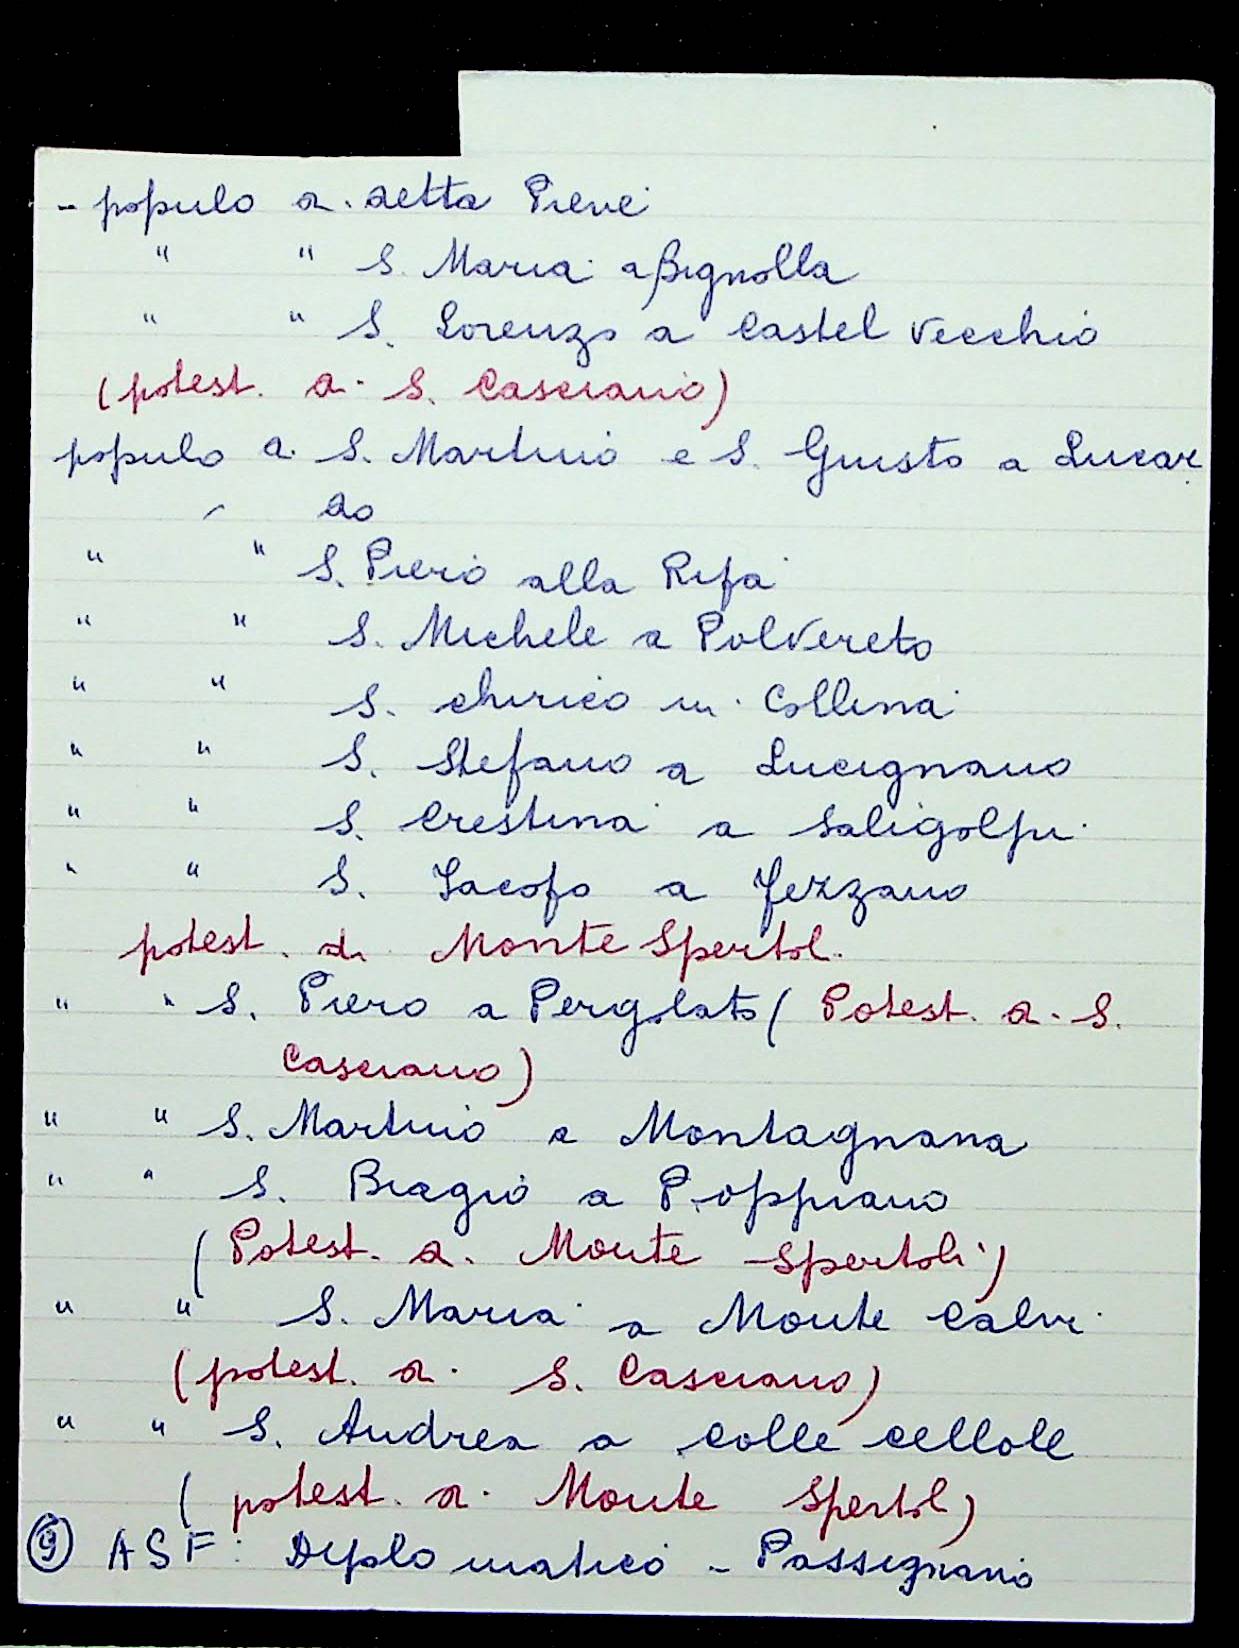 - populo di detta Pieve
" " S. Maria a Bignolla
" " S. Lorenzo a Castel Vecchio
(potest. di S. Casciano)
populo di S. Martino e S. Giusto a Lucar
do
" " S. Piero alla Ripa
" " S. Michele a Polvereto
" " S. Chirico in Collina
" " S. Stefano a Lucignano
" " S. Crestina a Saligolpi
" " S. Jacopo a Fezzano
potest. di Monte Spertol.
" " S. Piero a Pergolato (Potest. di S.
Casciano)
" " S. Martino a Montagnana
" " S. Biagio a Poppiano
(Potest. di Monte Spertoli)
" " S. Maria a Monte Calvi
(potest. di S. Casciano)
" " S. Andrea a Colle Cellole
(potest. di Monte Spertol)
⑨ ASF: Diplomatico - Passignano